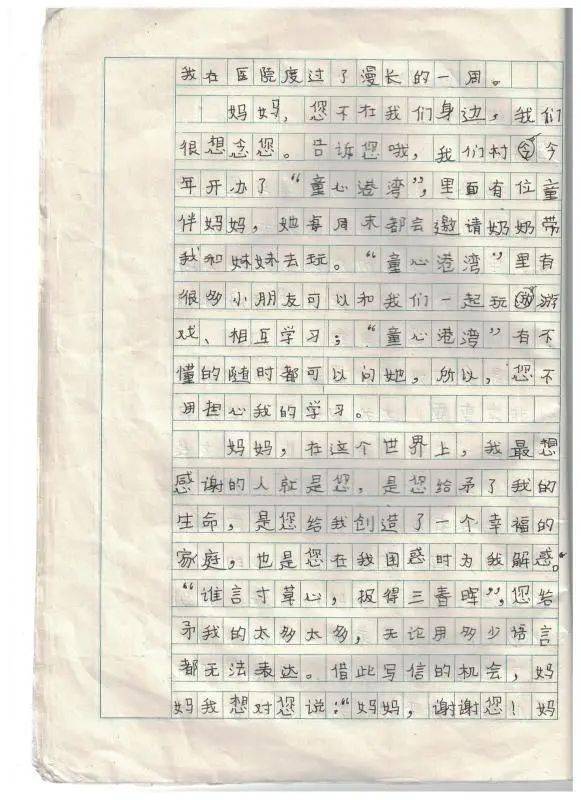 我在医院度过了漫长的一周。
妈妈，您不在我们身边，我们
很想念您。告诉您哦，我们村今
年开办了“童心港湾”，里面有位童
伴妈妈，她每周末都会邀请奶奶带
我和妹妹去玩。“童心港湾”里有
很多小朋友可以和我们一起玩游
戏、相互学习；“童心港湾”有不
懂的随时都可以问她，所以，您不
用担心我的学习。
妈妈，在这个世界上，我最想
感谢的人就是您，是您给矛了我的
生命，是您给我创造了一个幸福的
家庭，也是您在我困惑时为我解惑。
“谁言寸草心，报得三春晖”，您给
矛我的太多太多，无论用多少语言
都无法表达。借此写信的机会，妈
妈我想对您说：“妈妈，谢谢您！妈